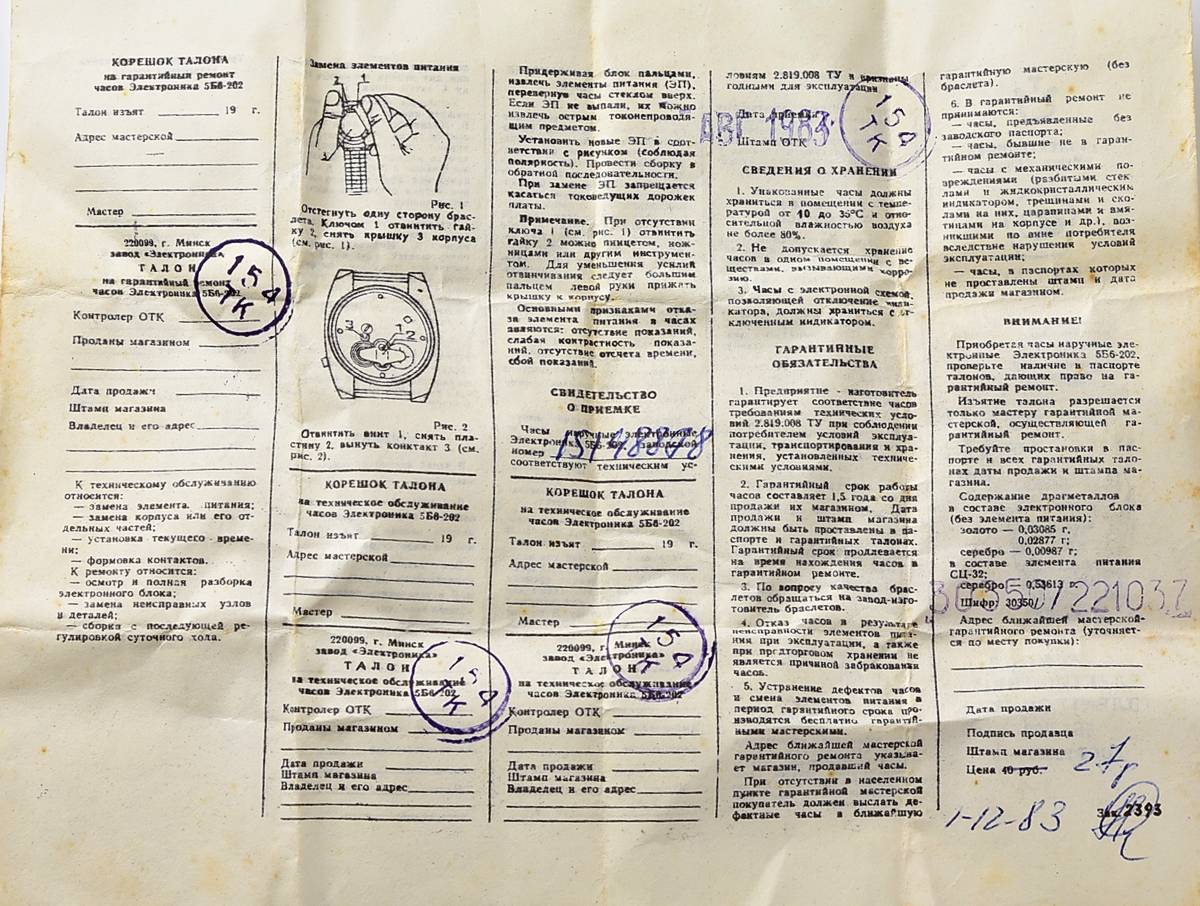 КОРЕШОК ТАЛОНА
на гарантийный ремонт
часов Электроника 5Б6-202
Талон изъят 19 г.
Адрес мастерской
Мастер
220099, г. Минск
завод «Электроника»
ТАЛОН
на гарантийный ремонт
часов Электроника 5Б6-202
15Д
ТК
Контролер ОТК
Проданы магазином
Дата продажи
Штамп магазина
Владелец и его адрес
К техническому обслуживанию
относится:
— замена элемента питания;
— замена корпуса или его от-
дельных частей;
— установка текущего време-
ни;
— формовка контактов.
К ремонту относится:
— осмотр и полная разборка
электронного блока;
— замена неисправных узлов
и деталей;
— сборка с последующей ре-
гулировкой суточного хода.
Замена элементов питания
2 1
Рис. 1
Отстегнуть одну сторону брас-
лета. Ключом 1 отвинтить гай-
ку 2, снять крышку 3 корпуса
(см. рис. 1).
3 1 2
Рис. 2
Отвинтить винт 1, снять пла-
стину 2, вынуть контакт 3 (см.
рис. 2).
КОРЕШОК ТАЛОНА
на техническое обслуживание
часов Электроника 5Б6-202
Талон изъят 19 г.
Адрес мастерской
Мастер
220099, г. Минск
завод «Электроника»
ТАЛОН
на техническое обслуживание
часов Электроника 5Б6-202
15Д
ТК
Контролер ОТК
Проданы магазином
Дата продажи
Штамп магазина
Владелец и его адрес
Придерживая блок пальцами,
извлечь элементы питания (ЭП),
перевернув часы стеклом вверх.
Если ЭП не выпали, их можно
извлечь острым токонепроводя-
щим предметом.
Установить новые ЭП в соот-
ветствии с рисунком (соблюдая
полярность). Провести сборку в
обратной последовательности.
При замене ЭП запрещается
касаться токоведущих дорожек
платы.
Примечание. При отсутствии
ключа 1 (см. рис. 1) отвинтить
гайку 2 можно пинцетом, нож-
ницами или другим инструмен-
том. Для уменьшения усилий
отвинчивания следует большим
пальцем левой руки прижать
крышку к корпусу.
Основными признаками отка-
за элемента питания в часах
являются: отсутствие показаний,
слабая контрастность показа-
ний, отсутствие отсчета времени,
сбой показаний.
СВИДЕТЕЛЬСТВО
О ПРИЕМКЕ
Часы наручные электронные
Электроника 5Б6-202 заводской
номер
соответствуют техническим ус-
КОРЕШОК ТАЛОНА
на техническое обслуживание
часов Электроника 5Б6-202
Талон изъят 19 г.
Адрес мастерской
Мастер
220099, г. Минск
завод «Электроника»
ТАЛОН
на техническое обслуживание
часов Электроника 5Б6-202
15Д
ТК
Контролер ОТК
Проданы магазином
Дата продажи
Штамп магазина
Владелец и его адрес
ловиям 2.819.008 ТУ и признаны
годными для эксплуатации
Дата приемки
АВГ 1983
Штамп ОТК
15Д
ТК
СВЕДЕНИЯ О ХРАНЕНИИ
1. Упакованные часы должны
храниться в помещении с темпе-
ратурой от 10 до 35°С и отно-
сительной влажностью воздуха
не более 80%.
2. Не допускается хранение
часов в одном помещении с ве-
ществами, вызывающими корро-
зию.
3. Часы с электронной схемой,
позволяющей отключение инди-
катора, должны храниться с от-
ключенным индикатором.
ГАРАНТИЙНЫЕ
ОБЯЗАТЕЛЬСТВА
1. Предприятие - изготовитель
гарантирует соответствие часов
требованиям технических усло-
вий 2.819.008 ТУ при соблюдении
потребителем условий эксплуа-
тации, транспортирования и хра-
нения, установленных техниче-
скими условиями.
2. Гарантийный срок работы
часов составляет 1,5 года со дня
продажи их магазином. Дата
продажи и штамп магазина
должны быть проставлены в па-
спорте и гарантийных талонах.
Гарантийный срок продлевается
на время нахождения часов в
гарантийном ремонте.
3. По вопросу качества брас-
летов обращаться на завод-изго-
товитель браслетов.
4. Отказ часов в результате
неисправности элементов пита-
ния при эксплуатации, а также
при предторговом хранении не
является причиной забракования
часов.
5. Устранение дефектов часов
и смена элементов питания в
период гарантийного срока про-
изводятся бесплатно гарантий-
ными мастерскими.
Адрес ближайшей мастерской
гарантийного ремонта указыва-
ет магазин, продавший часы.
При отсутствии в населенном
пункте гарантийной мастерской
покупатель должен выслать де-
фектные часы в ближайшую
гарантийную мастерскую (без
браслета).
6. В гарантийный ремонт не
принимаются:
— часы, предъявленные без
заводского паспорта;
— часы, бывшие не в гаран-
тийном ремонте;
— часы с механическими по-
вреждениями (разбитыми стек-
лами и жидкокристаллическим
индикатором, трещинами и ско-
лами на них, царапинами и вмя-
тинами на корпусе и др.), воз-
никшими по вине потребителя
вследствие нарушения условий
эксплуатации;
— часы, в паспортах которых
не проставлены штамп и дата
продажи магазином.
ВНИМАНИЕ!
Приобретая часы наручные эле-
ктронные Электроника 5Б6-202,
проверьте наличие в паспорте
талонов, дающих право на га-
рантийный ремонт.
Изъятие талона разрешается
только мастеру гарантийной ма-
стерской, осуществляющей га-
рантийный ремонт.
Требуйте простановки в пас-
порте и всех гарантийных тало-
нах даты продажи и штампа ма-
газина.
Содержание драгметаллов
в составе электронного блока
(без элемента питания):
золото — 0,03085 г,
0,02877 г;
серебро — 0,00987 г;
в составе элемента питания
СЦ-32:
серебро 0,53613 г.
Шифр: 30350/
30350/221037
Адрес ближайшей мастерской-
гарантийного ремонта (уточняет-
ся по месту покупки):
Дата продажи
Подпись продавца
Штамп магазина
Цена 40 руб. 27р
1-12-83
Зак. 2393